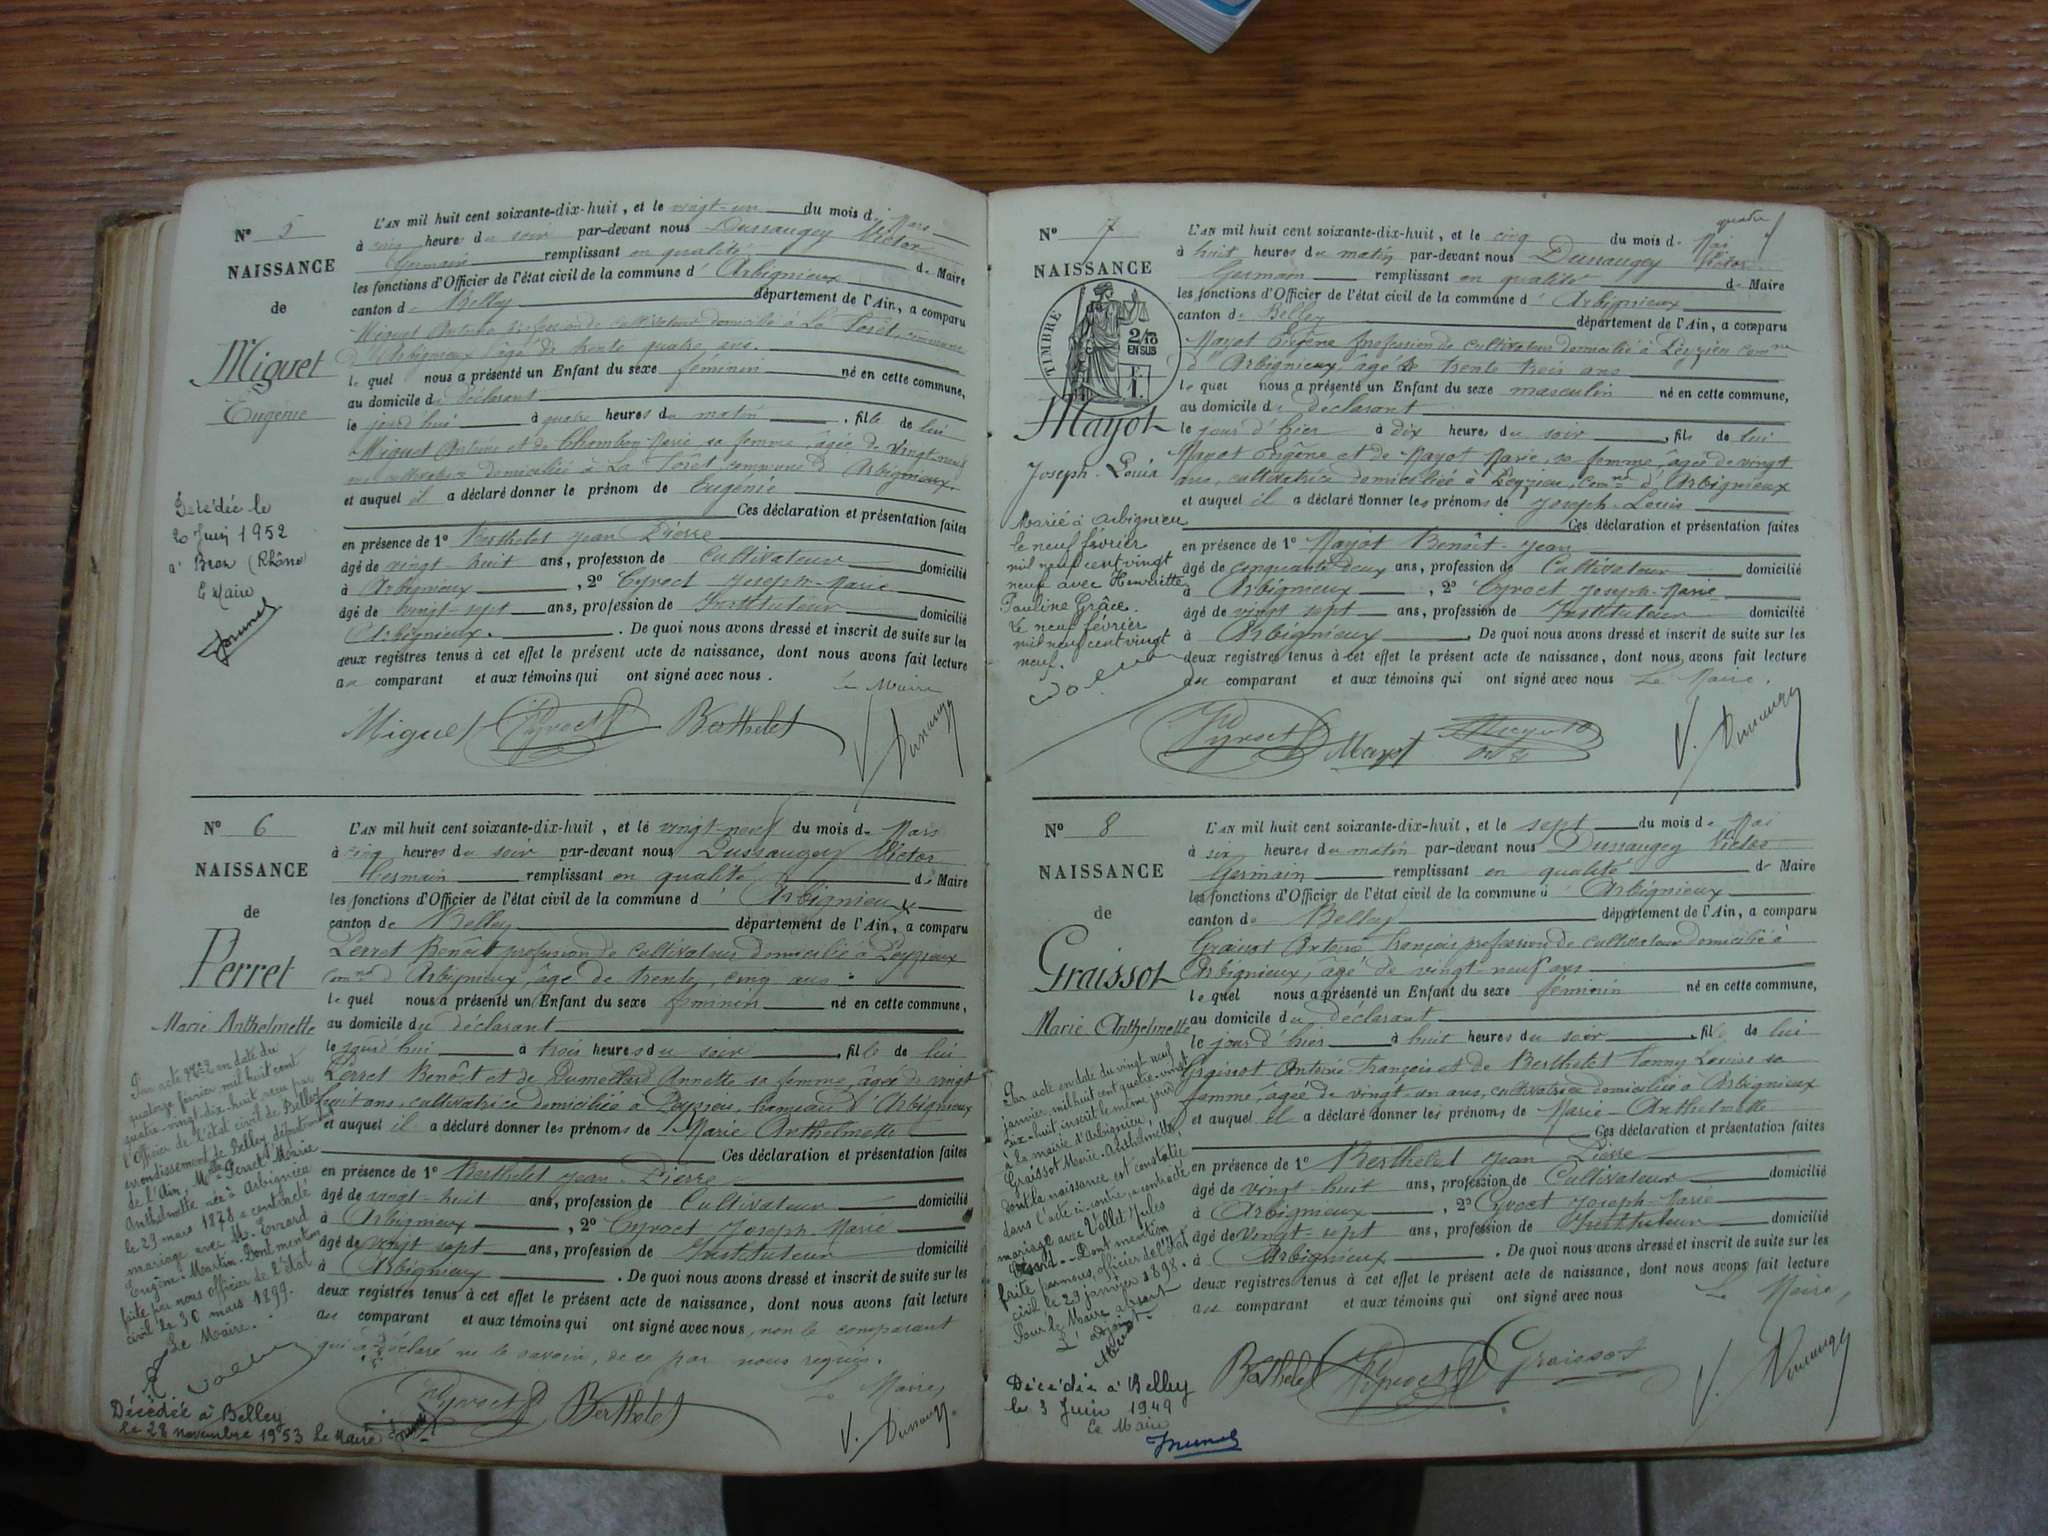 N° 5
NAISSANCE
de
Miguet
Eugénie
Décédée le
20 Juin 1952
à Bron (Rhône)
Le Maire
L'AN mil huit cent soixante-dix-huit, et le vingt-un du mois de Mars
à cinq heures du soir par-devant nous Dussaugey Victor
Germain remplissant en qualité de Maire
les fonctions d'Officier de l'état civil de la commune d'Arbignieux
canton de Belley département de l'Ain, a comparu
Miguet Antoine profession de cultivateur domicilié à La Forêt, commune
d'Arbignieux âgé de trente quatre ans.
le quel nous a présenté un Enfant du sexe féminin né en cette commune,
au domicile du déclarant
le jourd'hui à quatre heures du matin, fille de lui
Miguet Antoine et de Chambon Marie sa femme, âgée de vingt-neuf
ans cultivatrice domiciliée à La Forêt, commune d'Arbignieux.
et auquel il a déclaré donner le prénom de Eugénie
Ces déclaration et présentation faites
en présence de 1° Berthelet Jean Pierre
âgé de vingt-huit ans, profession de Cultivateur domicilié
à Arbignieux, 2° Cyvoct Joseph-Marie
âgé de vingt-sept ans, profession de Instituteur domicilié
Arbignieux. De quoi nous avons dressé et inscrit de suite sur les
deux registres tenus à cet effet le présent acte de naissance, dont nous avons fait lecture
au comparant et aux témoins qui ont signé avec nous.
Le Maire
Miguet Cyvoct Berthelet V. Dussaugey
N° 6
NAISSANCE
de
Perret
Marie Anthelmette
Par acte N° 2 en date du
quatorze février mil huit cent
quatre-vingt-dix-huit reçu par
l'Officier de l'état civil de Belley
arrondissement de Belley département
de l'Ain, Mlle Perret Marie
Anthelmette née à Arbignieu
le 29 mars 1878 a contracté
mariage avec M. Evrard
Eugène-Martin. Dont mention
faite par nous officier de l'état
civil le 30 mars 1899.
Le Maire.
Décédée à Belley
le 28 novembre 1953 Le Maire
L'AN mil huit cent soixante-dix-huit, et le vingt-neuf du mois de Mars
à cinq heures du soir par-devant nous Dussaugey Victor
Germain remplissant en qualité de Maire
les fonctions d'Officier de l'état civil de la commune d'Arbignieux
canton de Belley département de l'Ain, a comparu
Perret Benoît profession de cultivateur domicilié à Peyzieux
comne d'Arbignieux, âgé de trente, cinq ans
le quel nous a présenté un Enfant du sexe féminin né en cette commune,
au domicile du déclarant
le jourd'hui à trois heures du soir, fille de lui
Perret Benoît et de Dumollard Annette sa femme, âgée de vingt
huit ans, cultivatrice domiciliée à Peyzieu, hameau d'Arbignieux
et auquel il a déclaré donner les prénoms de Marie Anthelmette
Ces déclaration et présentation faites
en présence de 1° Berthelet Jean-Pierre
âgé de vingt-huit ans, profession de Cultivateur domicilié
à Arbignieux, 2° Cyvoct Joseph-Marie
âgé de vingt sept ans, profession de Instituteur domicilié
à Arbignieux. De quoi nous avons dressé et inscrit de suite sur les
deux registres tenus à cet effet le présent acte de naissance, dont nous avons fait lecture
au comparant et aux témoins qui ont signé avec nous, non le comparant
qui a déclaré ne le savoir, de ce par nous requis.
Le Maire,
Cyvoct Berthelet V. Dussaugey
N° 7
NAISSANCE
TIMBRE
2/10
EN SUS
Mayot
Joseph-Louis
Marié à Arbignieu
le neuf février
mil neuf cent vingt
neuf avec Henriette
Pauline Grâce.
Le neuf février
mil neuf cent vingt
neuf.
quatre
L'AN mil huit cent soixante-dix-huit, et le cinq du mois de Mai
à huit heures du matin par-devant nous Dussaugey Victor
Germain remplissant en qualité de Maire
les fonctions d'Officier de l'état civil de la commune d'Arbignieux
canton de Belley département de l'Ain, a comparu
Mayot Eugène profession de cultivateur domicilié à Peyzieu comne
d'Arbignieux, âgé de trente trois ans
le quel nous a présenté un Enfant du sexe masculin né en cette commune,
au domicile du déclarant
le jour d'hier à dix heures du soir, fils de lui
Mayot Eugène et de Mayot Marie, sa femme, âgée de vingt
ans, cultivatrice domiciliée à Peyzieu, comne d'Arbignieux
et auquel il a déclaré donner les prénoms de Joseph-Louis
Ces déclaration et présentation faites
en présence de 1° Mayot Benoît-Jean
âgé de cinquante deux ans, profession de Cultivateur domicilié
à Arbignieux, 2° Cyvoct Joseph-Marie
âgé de vingt sept ans, profession de Instituteur domicilié
à Arbignieux. De quoi nous avons dressé et inscrit de suite sur les
deux registres tenus à cet effet le présent acte de naissance, dont nous avons fait lecture
au comparant et aux témoins qui ont signé avec nous Le Maire.
Cyvoct Mayot V. Dussaugey
N° 8
NAISSANCE
de
Graissot
Marie Anthelmette
Par acte en date du vingt neuf
janvier mil huit cent quatre-vingt
dix-huit inscrit le même jour
à la mairie d'Arbignieu,
Graissot Marie-Anthelmette,
dont la naissance est constatée
dans l'acte ci-contre, a contracté
mariage avec Vallet Jules
Dont mention
faite par nous, officier de l'état
civil le 29 janvier 1898.
Pour le Maire absent
L'adjoint
Décédée à Belley
le 3 Juin 1949
Le Maire
L'AN mil huit cent soixante-dix-huit, et le sept du mois de Mai
à six heures du matin par-devant nous Dussaugey Victor
Germain remplissant en qualité de Maire
les fonctions d'Officier de l'état civil de la commune d'Arbignieux
canton de Belley département de l'Ain, a comparu
Graissot Antoine François profession de cultivateur domicilié à
Arbignieux, âgé de vingt-neuf ans
le quel nous a présenté un Enfant du sexe féminin né en cette commune,
au domicile du déclarant
le jour d'hier à huit heures du soir, fille de lui
Graissot Antoine François et de Berthelet Fanny Louise sa
femme, âgée de vingt-un ans, cultivatrice domiciliée à Arbignieux
et auquel il a déclaré donner les prénoms de Marie-Anthelmette
Ces déclaration et présentation faites
en présence de 1° Berthelet Jean Pierre
âgé de vingt-huit ans, profession de Cultivateur domicilié
à Arbignieux, 2° Cyvoct Joseph-Marie
âgé de vingt-sept ans, profession de Instituteur domicilié
à Arbignieux. De quoi nous avons dressé et inscrit de suite sur les
deux registres tenus à cet effet le présent acte de naissance, dont nous avons fait lecture
au comparant et aux témoins qui ont signé avec nous Le Maire,
Berthelet Cyvoct Graissot V. Dussaugey